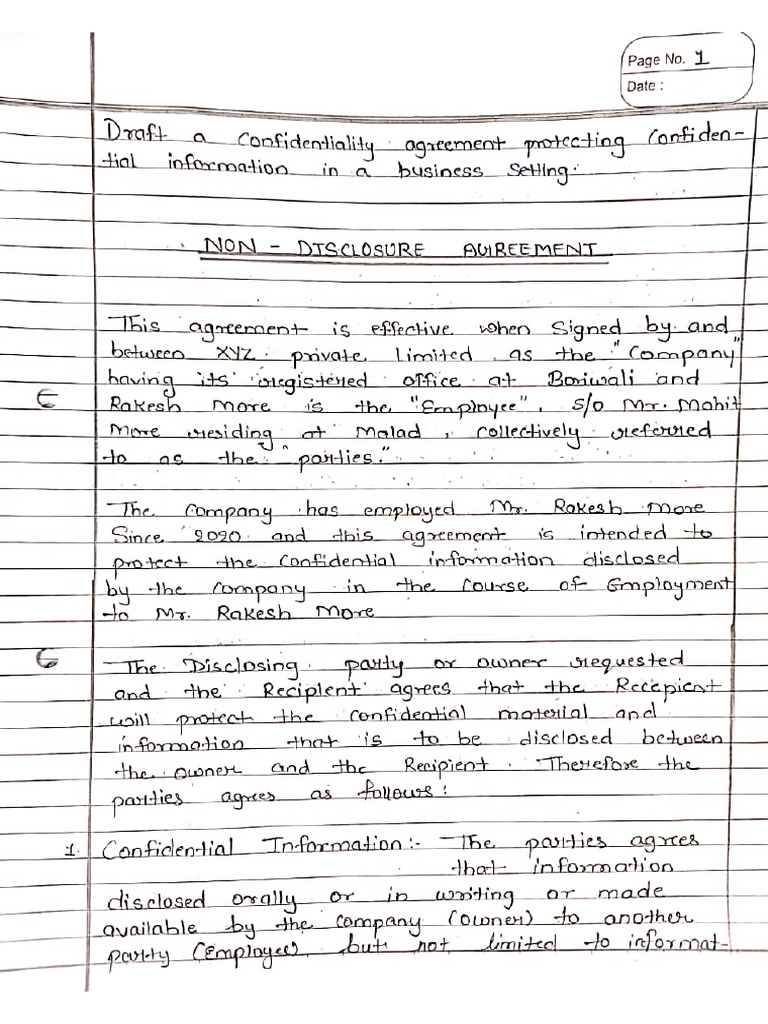 Page No. 1
Date :
Draft a confidentiality agreement protecting Confiden-
tial information in a business setting.
NON - DISCLOSURE AGREEMENT
This agreement is effective when Signed by and
between XYZ private limited as the "Company"
having its registered office at Boriwali and
Rakesh More is the "Employee", s/o Mr. Mohit
More residing at Malad, collectively referred
to as the "parties."
The Company has employed Mr. Rakesh More
Since 2020 and this agreement is intended to
protect the Confidential information disclosed
by the company in the Course of Employment
to Mr. Rakesh More
The Disclosing party or owner requested
and the Recipient agrees that the Recepient
will protect the confidential material and
information that is to be disclosed between
the owner and the Recipient. Therefore the
parties agrees as follows:
1. Confidential Information:- The parties agrees
that information
disclosed orally or in writing or made
available by the company (owner) to another
party (Employee) but not limited to informat-